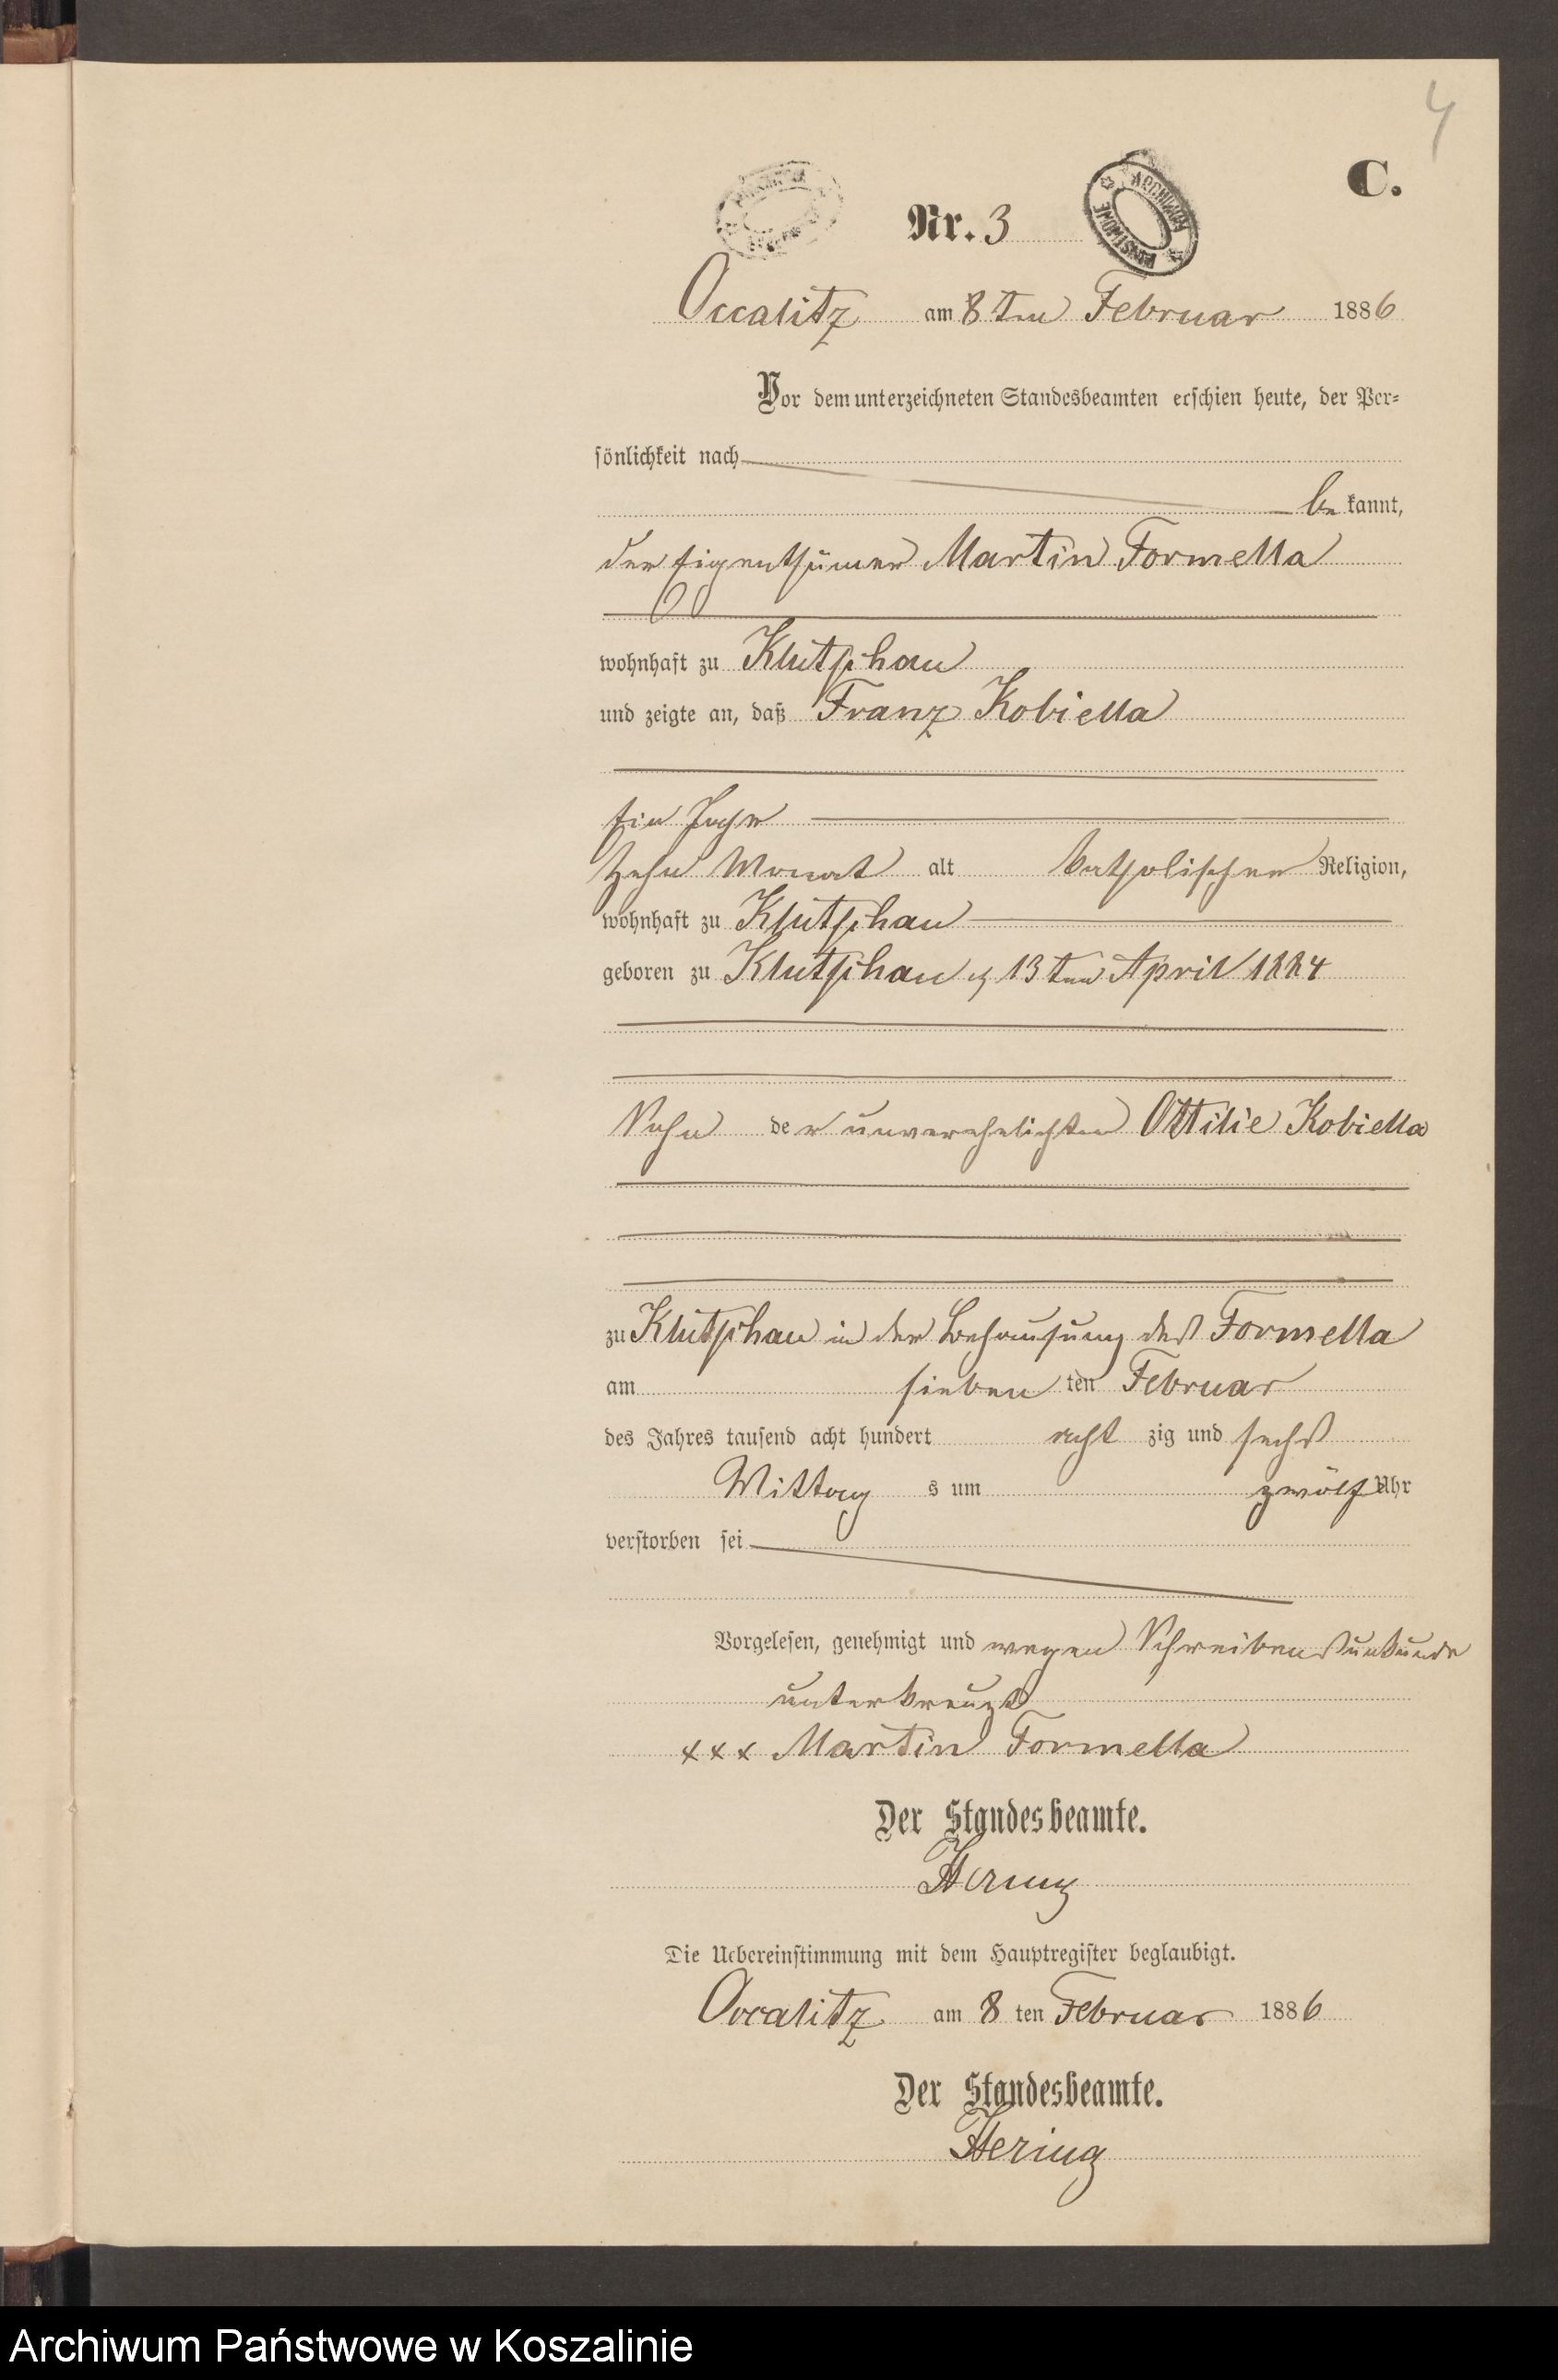 4
C.
ARCHIWUM PAŃSTWOWE
Nr. 3
Occalitz am 8ten Februar 1886
Vor dem unterzeichneten Standesbeamten erschien heute, der Per-
sönlichkeit nach
be kannt,
der Eigenthümer Martin Formella
wohnhaft zu Klutschau
und zeigte an, daß Franz Kobiella
Ein Jahr
Zehn Monat alt katholischer Religion,
wohnhaft zu Klutschau
geboren zu Klutschau 13ten April 1884
Sohn der unverehelichten Ottilie Kobiella
zu Klutschau in der Behausung des Formella
am sieben ten Februar
des Jahres tausend acht hundert acht zig und sechs
Mittag s um zwölf Uhr
verstorben sei
Vorgelesen, genehmigt und wegen Schreibensunkunde
unterkreuzt
xxx Martin Formella
Der Standesbeamte.
Hering
Die Uebereinstimmung mit dem Hauptregister beglaubigt.
Occalitz am 8 ten Februar 1886
Der Standesbeamte.
Hering
Archiwum Państwowe w Koszalinie